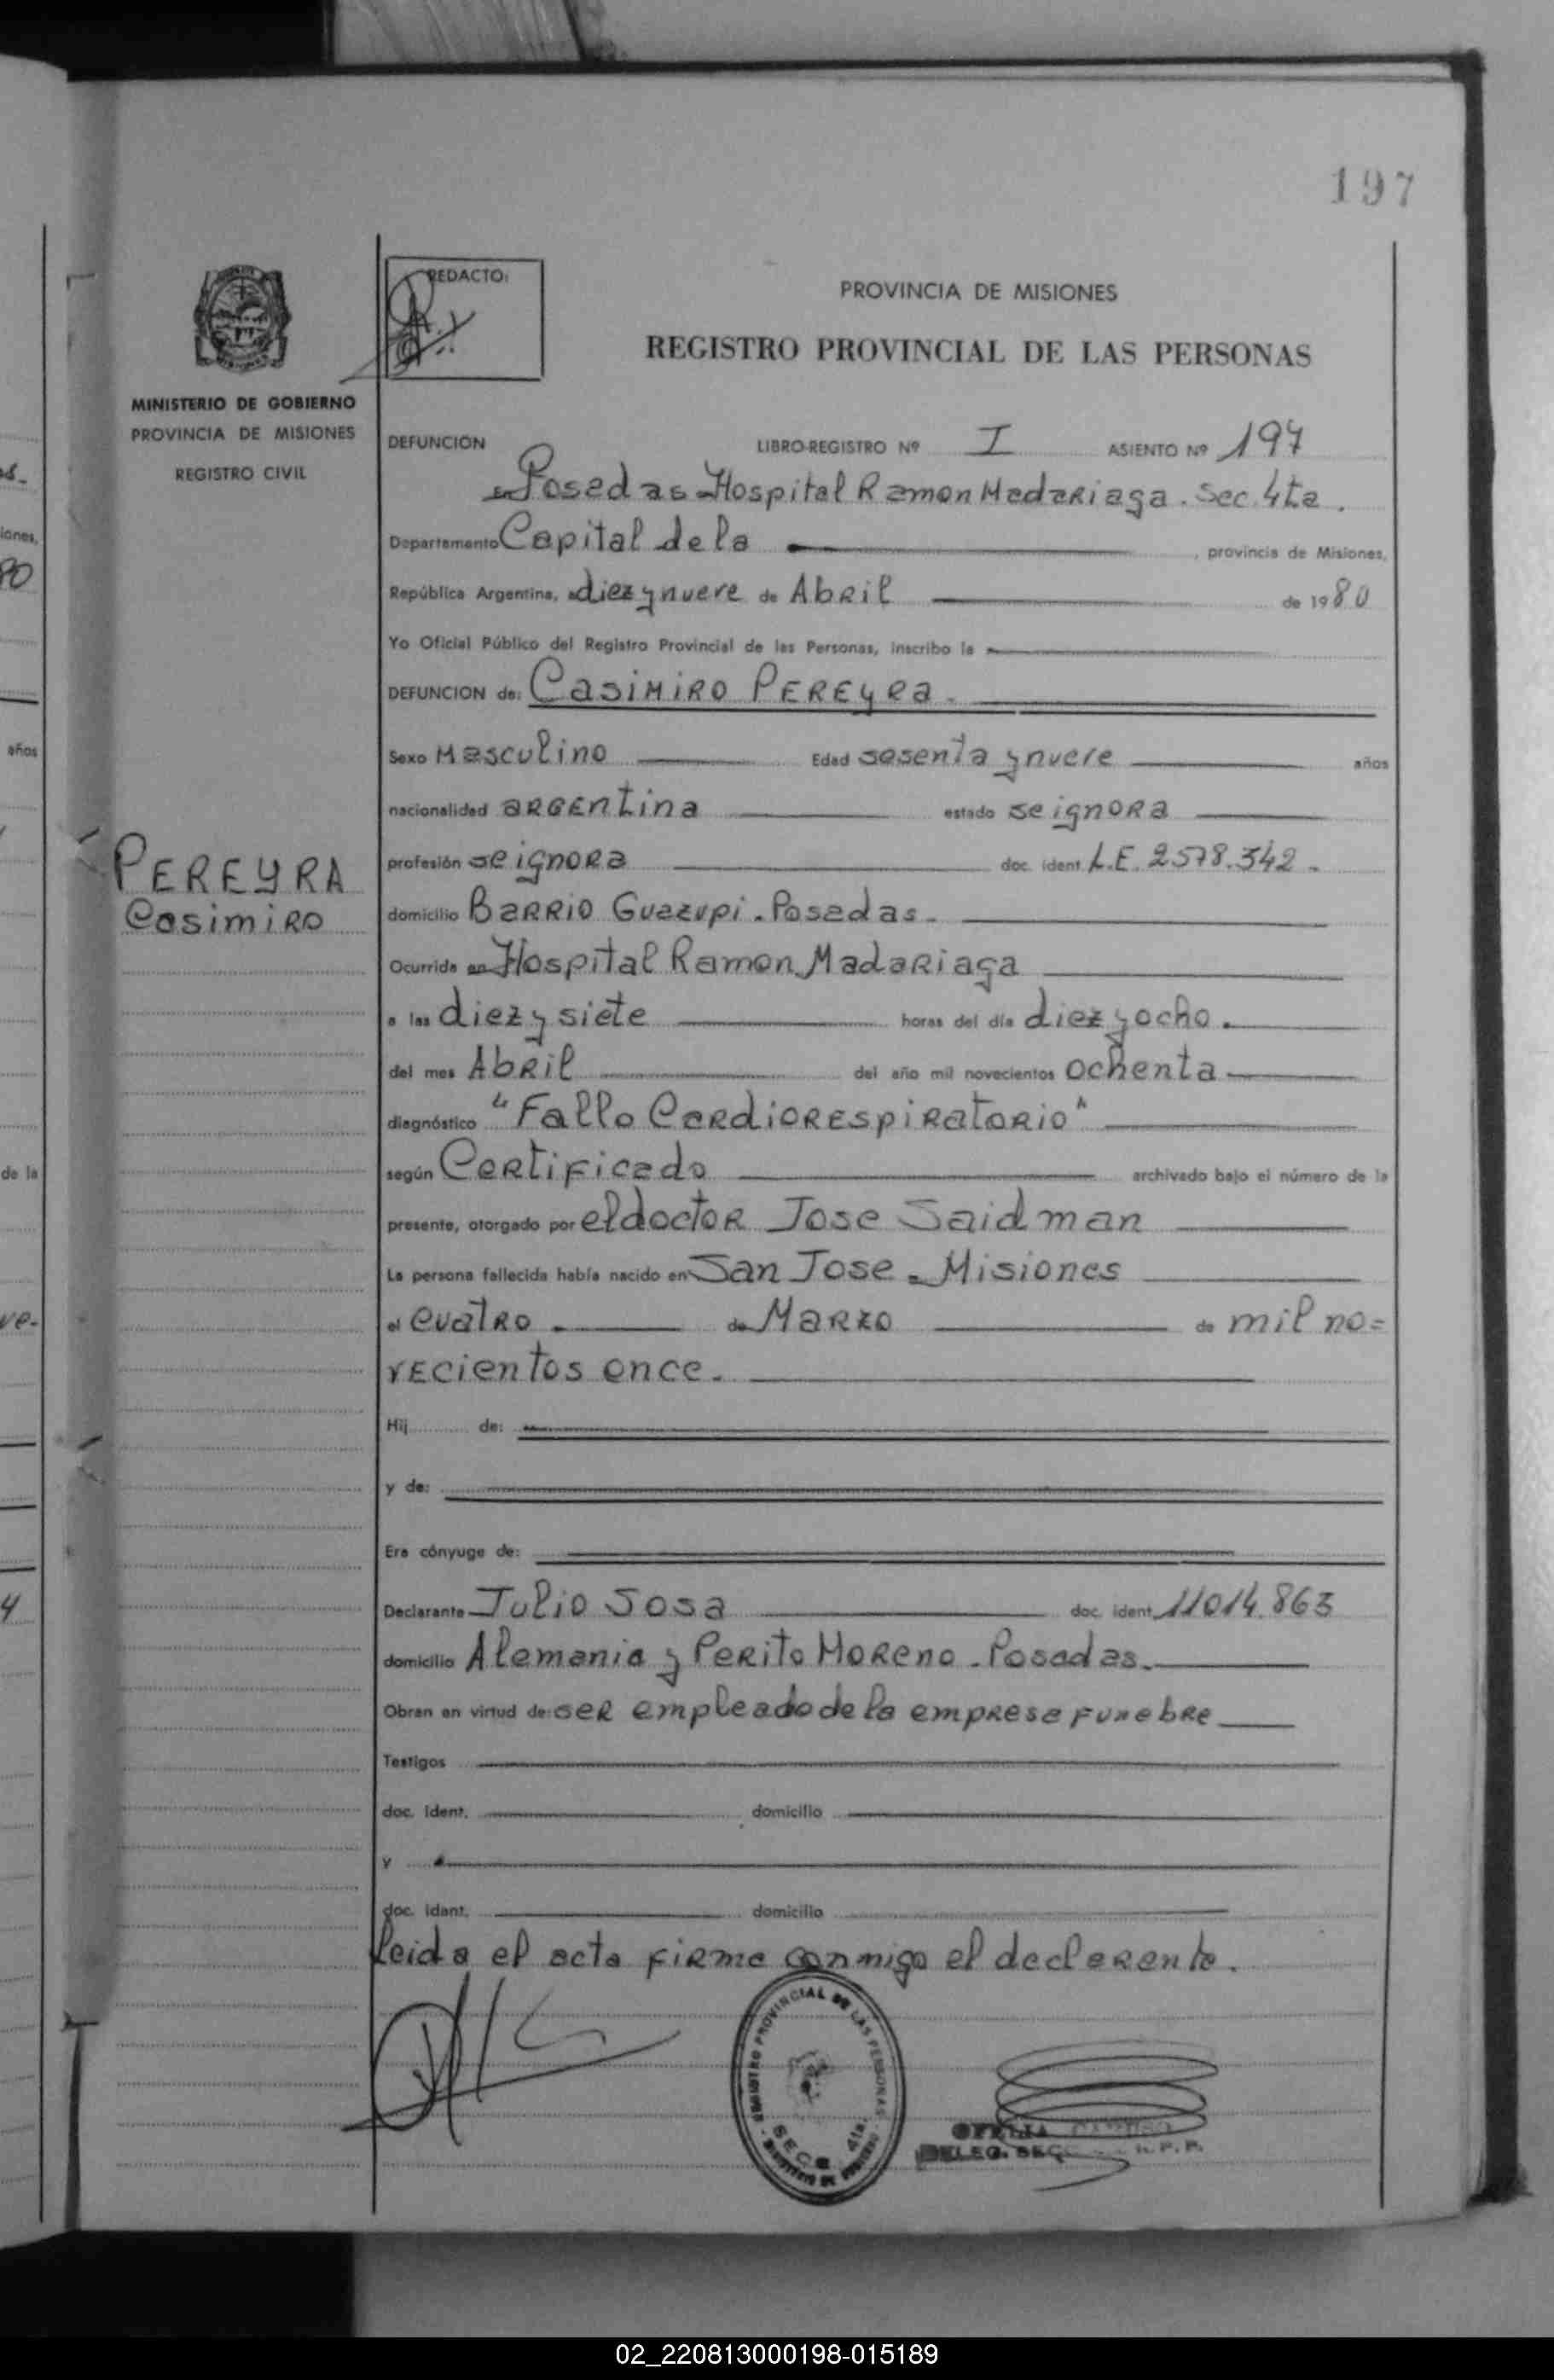 197
REDACTO:
PROVINCIA DE MISIONES
REGISTRO PROVINCIAL DE LAS PERSONAS
MINISTERIO DE GOBIERNO
PROVINCIA DE MISIONES
REGISTRO CIVIL
DEFUNCION LIBRO-REGISTRO Nº I ASIENTO Nº 197
en Posadas-Hospital Ramon Madariaga. Sec. 4ta.
Departamento Capital de la provincia de Misiones,
República Argentina, a diez y nueve de Abril de 1980
Yo Oficial Público del Registro Provincial de las Personas, inscribo la
DEFUNCION de: Casimiro Pereyra.
Sexo Masculino Edad sesenta y nueve años
nacionalidad argentina estado se ignora
profesión se ignora doc. ident. L.E. 2578.342.
PEREYRA
Casimiro
domicilio Barrio Guazupi. Posadas.
Ocurrida en Hospital Ramon Madariaga
a las diez y siete horas del día diez y ocho.
del mes Abril del año mil novecientos ochenta
diagnóstico "Fallo Cardiorespiratorio"
según Certificado archivado bajo el número de la
presente, otorgado por el doctor Jose Saidman
La persona fallecida había nacido en San Jose - Misiones
el cuatro de Marzo de mil no=
vecientos once.
Hij de:
y de:
Era cónyuge de:
Declarante Julio Sosa doc. ident. 11014.863
domicilio Alemania y Perito Moreno. Posadas.
Obran en virtud de: ser empleado de la empresa funebre
Testigos
doc. ident. domicilio
y
doc. ident. domicilio
Leida el acta firma conmigo el declarante.
REGISTRO PROVINCIAL DE LAS PERSONAS
SECC. 4ta.
OFELIA
DELEG. SECC. R.P.P.
ones,
80
años
de la
ve-
4
02_220813000198-015189